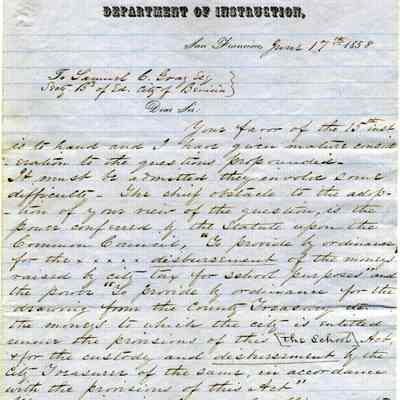 DEPARTMENT OF INSTRUCTION,
San Francisco, June 17th 1858
To Samuel C. Gray Esq
Secty Bd of Ed. City of Benicia
Dear Sir:
Your favor of the 15th inst
is to hand and I have given mature consid
eration to the questions propounded.
It must be admitted they involve some
difficulty - The chief obstacle to the adop-
-tion of your view of the question, is the
power conferred by the Statute upon the
Common Council, "To provide by ordinance
for the . . . . disbursement of the moneys
raised by city tax for school purposes" and
the power "To provide by ordinance for the
drawing from the County Treasury &c.
the moneys to which the city is entitled
under the provisions of this [The School] Act,
& for the custody and disbursement by the
City Treasurer of the same, in accordance
with the provisions of this Act"